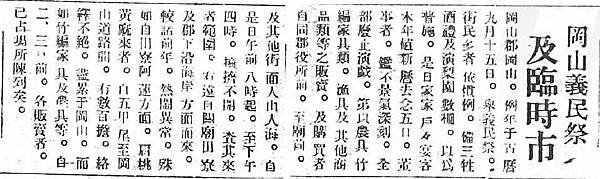 岡山義民祭
及臨時市
岡山郡岡山。例年于古曆
九月十五日。舉義民祭。
街民多者 依慣例。備三牲
酒禮及演梨園數棚。以爲
普施。是日家家戶々宴客
本年値新曆去念五日。董
事者。鑑不景氣深刻。全
部廢止演戲。第以農具竹
編家具類。漁具及其他商
品類等之販賣。及購買者
自同郡役所前。至廟前。
及其他街 面人山人海。自
是日午前 八時起。至下午
四時。擁擠不開。查其來
者範圍。右遠自關廟田寮
及郡下沿海岸 方面而來。
較諸前年。熱鬧異常。殊
如自田寮阿蓮方面。肩桃
黃麻來者。自五甲尾至岡
山道路間。有數百擔。絡
繹不絕。盡累于岡山。而
如竹編家具及農具等。自
二、三日前。各販賣者。
已占場所陳列矣。